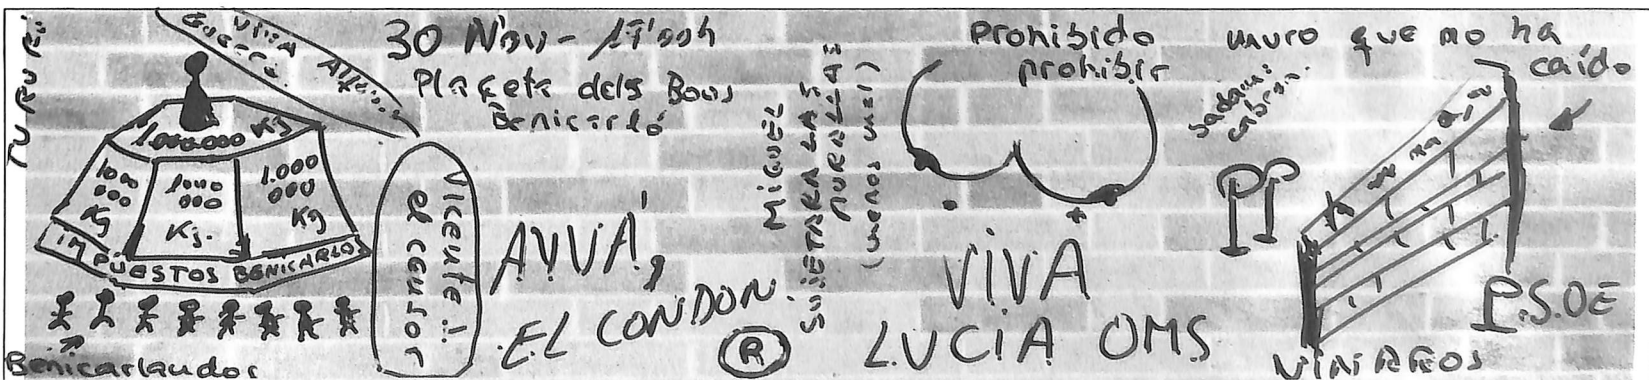 VIVA Alfon
Guerra
1.000.000 Kg
1000
000
Kg
1000
000
Kg.
1.000
000
Kg
IMPUESTOS BENICARLOS
Benicarlandos
30 Nov - 17'00h
Plaçeta dels Bous
Benicarló
Vicente
el censor
AYVÁ,
EL CONDON.
R
MIGUEL
SUJETARA LAS
MURALLAS
(menos mal)
Prohibido
prohibir
VIVA
LUCIA OMS
Sadam:
cabron.
PP
muro que no ha
caído
P.S.OE
VINAROS